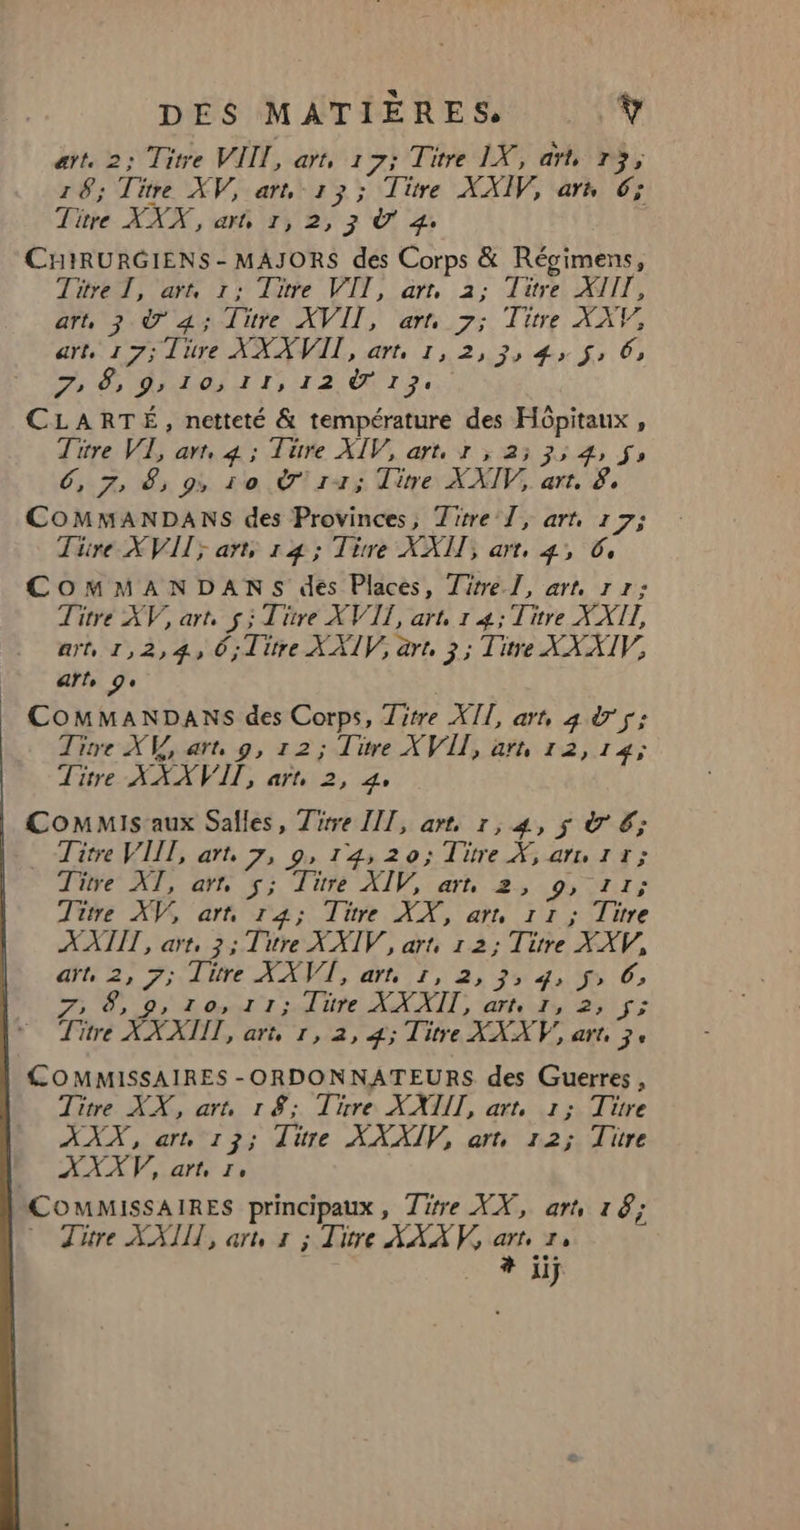 DES MATIÈRES. V
art. 2; Titre VIII, art. 17; Titre IX, art. 13,
18; Titre XV, art. 13; Titre XXIV, art. 6;
Titre XXX, art. 1, 2, 3 & 4.
CHIRURGIENS-MAJORS des Corps & Régimens,
Titre I, art. 1; Titre VII, art. 2; Titre XIII,
art. 3 & 4; Titre XVII, art. 7; Titre XXV,
art. 17; Titre XXXVII, art. 1, 2, 3, 4, 5, 6,
7, 8, 9, 10, 11, 12 & 13.
CLARTÉ, netteté & température des Hôpitaux,
Titre VI, art. 4; Titre XIV, art. 1, 2, 3, 4, 5,
6, 7, 8, 9, 10 & 11; Titre XXIV, art. 8.
COMMANDANS des Provinces, Titre I, art. 17;
Titre XVII, art. 14; Titre XXII, art. 4, 6.
COMMANDANS des Places, Titre I, art. 11;
Titre XV, art. 5; Titre XVII, art. 14; Titre XXII,
art. 1, 2, 4, 6; Titre XXIV, art. 3; Titre XXXIV,
art. 9.
COMMANDANS des Corps, Titre XII, art. 4 & 5;
Titre XV, art. 9, 12; Titre XVII, art. 12, 14;
Titre XXXVII, art. 2, 4.
COMMIS aux Salles, Titre III, art. 1, 4, 5 & 6;
Titre VIII, art. 7, 9, 14, 20; Titre X, art. 11;
Titre XI, art. 5; Titre XIV, art. 2, 9, 11;
Titre XV, art. 14; Titre XX, art. 11; Titre
XXIII, art. 3; Titre XXIV, art. 12; Titre XXV,
art. 2, 7; Titre XXVI, art. 1, 2, 3, 4, 5, 6,
7, 8, 9, 10, 11; Titre XXXII, art. 1, 2, 5;
Titre XXXIII, art. 1, 2, 4; Titre XXXV, art. 3.
COMMISSAIRES-ORDONNATEURS des Guerres,
Titre XX, art. 18; Titre XXIII, art. 1; Titre
XXX, art. 13; Titre XXXIV, art. 12; Titre
XXXV, art. 1.
COMMISSAIRES principaux, Titre XX, art. 18;
Titre XXIII, art. 1; Titre XXXV, art. 1.
* iij